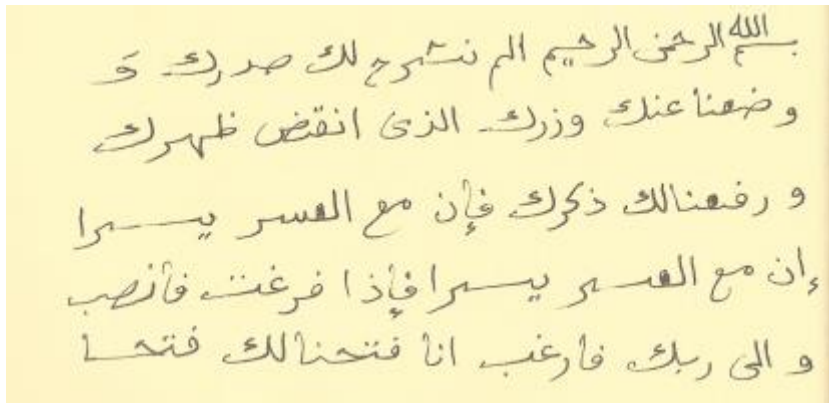 بسم الله الرحمن الرحيم الم نشرح لك صدرك و
وضعنا عنك وزرك الذى انقض ظهرك
و رفعنا لك ذكرك فإن مع العسر يسرا
إن مع العسر يسرا فإذا فرغت فأنصب
و الى ربك فارغب انا فتحنا لك فتحا